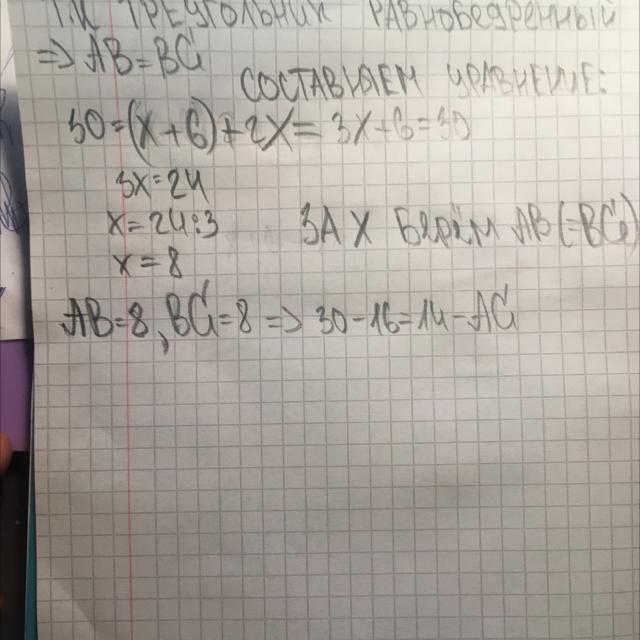 Т.К ТРЕУГОЛЬНИК РАВНОБЕДРЕННЫЙ
=> AB=BC
СОСТАВЛЯЕМ УРАВНЕНИЕ:
30=(x+6)+2x= 3x+6=30
3x=24
x=24:3 ЗА X БЕРЁМ AB(=BC)
x=8
AB=8, BC=8 => 30-16=14-AC